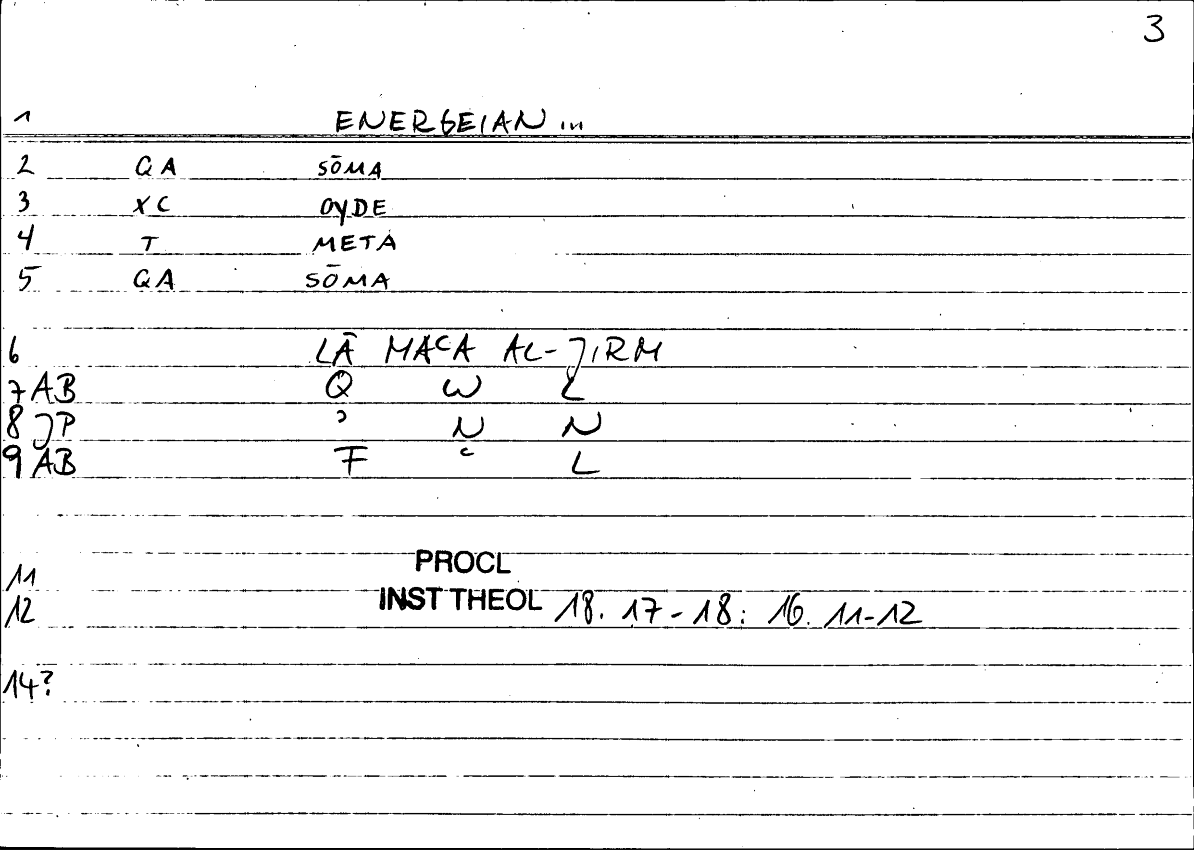 3
1 ENERGEIAN in
2 QA SŌMA
3 XC OYDE
4 T META
5 QA SŌMA
6 LĀ MAᶜA AL-JIRM
7 AB Q W L
8 JP ʾ N N
9 AB F ᶜ L
11 PROCL
12 INST THEOL 18. 17-18: 16. 11-12
14?